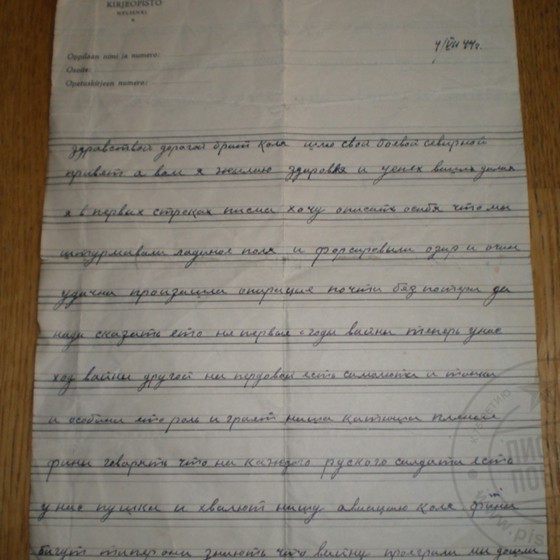 KIRJEOPISTO
HELSINKI
Oppilaan nimi ja numero:
Osoite:
Opintokirjeen numero:
4/VII 44г.
здравствой дорогой брат Коля шлю свой боевой северной
привят я вам я желаю здоровя и успех
я в первых строках писма хочу описать особя что мы
штурмивали ладиное поля и форсировыли озир и очин
удачни произвили опирицие почти без потери да
нада сказать ето не первые годы вайны теперь у нас
ход вайны другой на передовой есть самолюты и танки
и особини ето роль играет наша катюши пленые
фины говарять что на каждого руского салдата есть
у нас пушка и хвалют нашу авиацию Коля фины
бигут типер они знають что вайну проиграли мы дошли